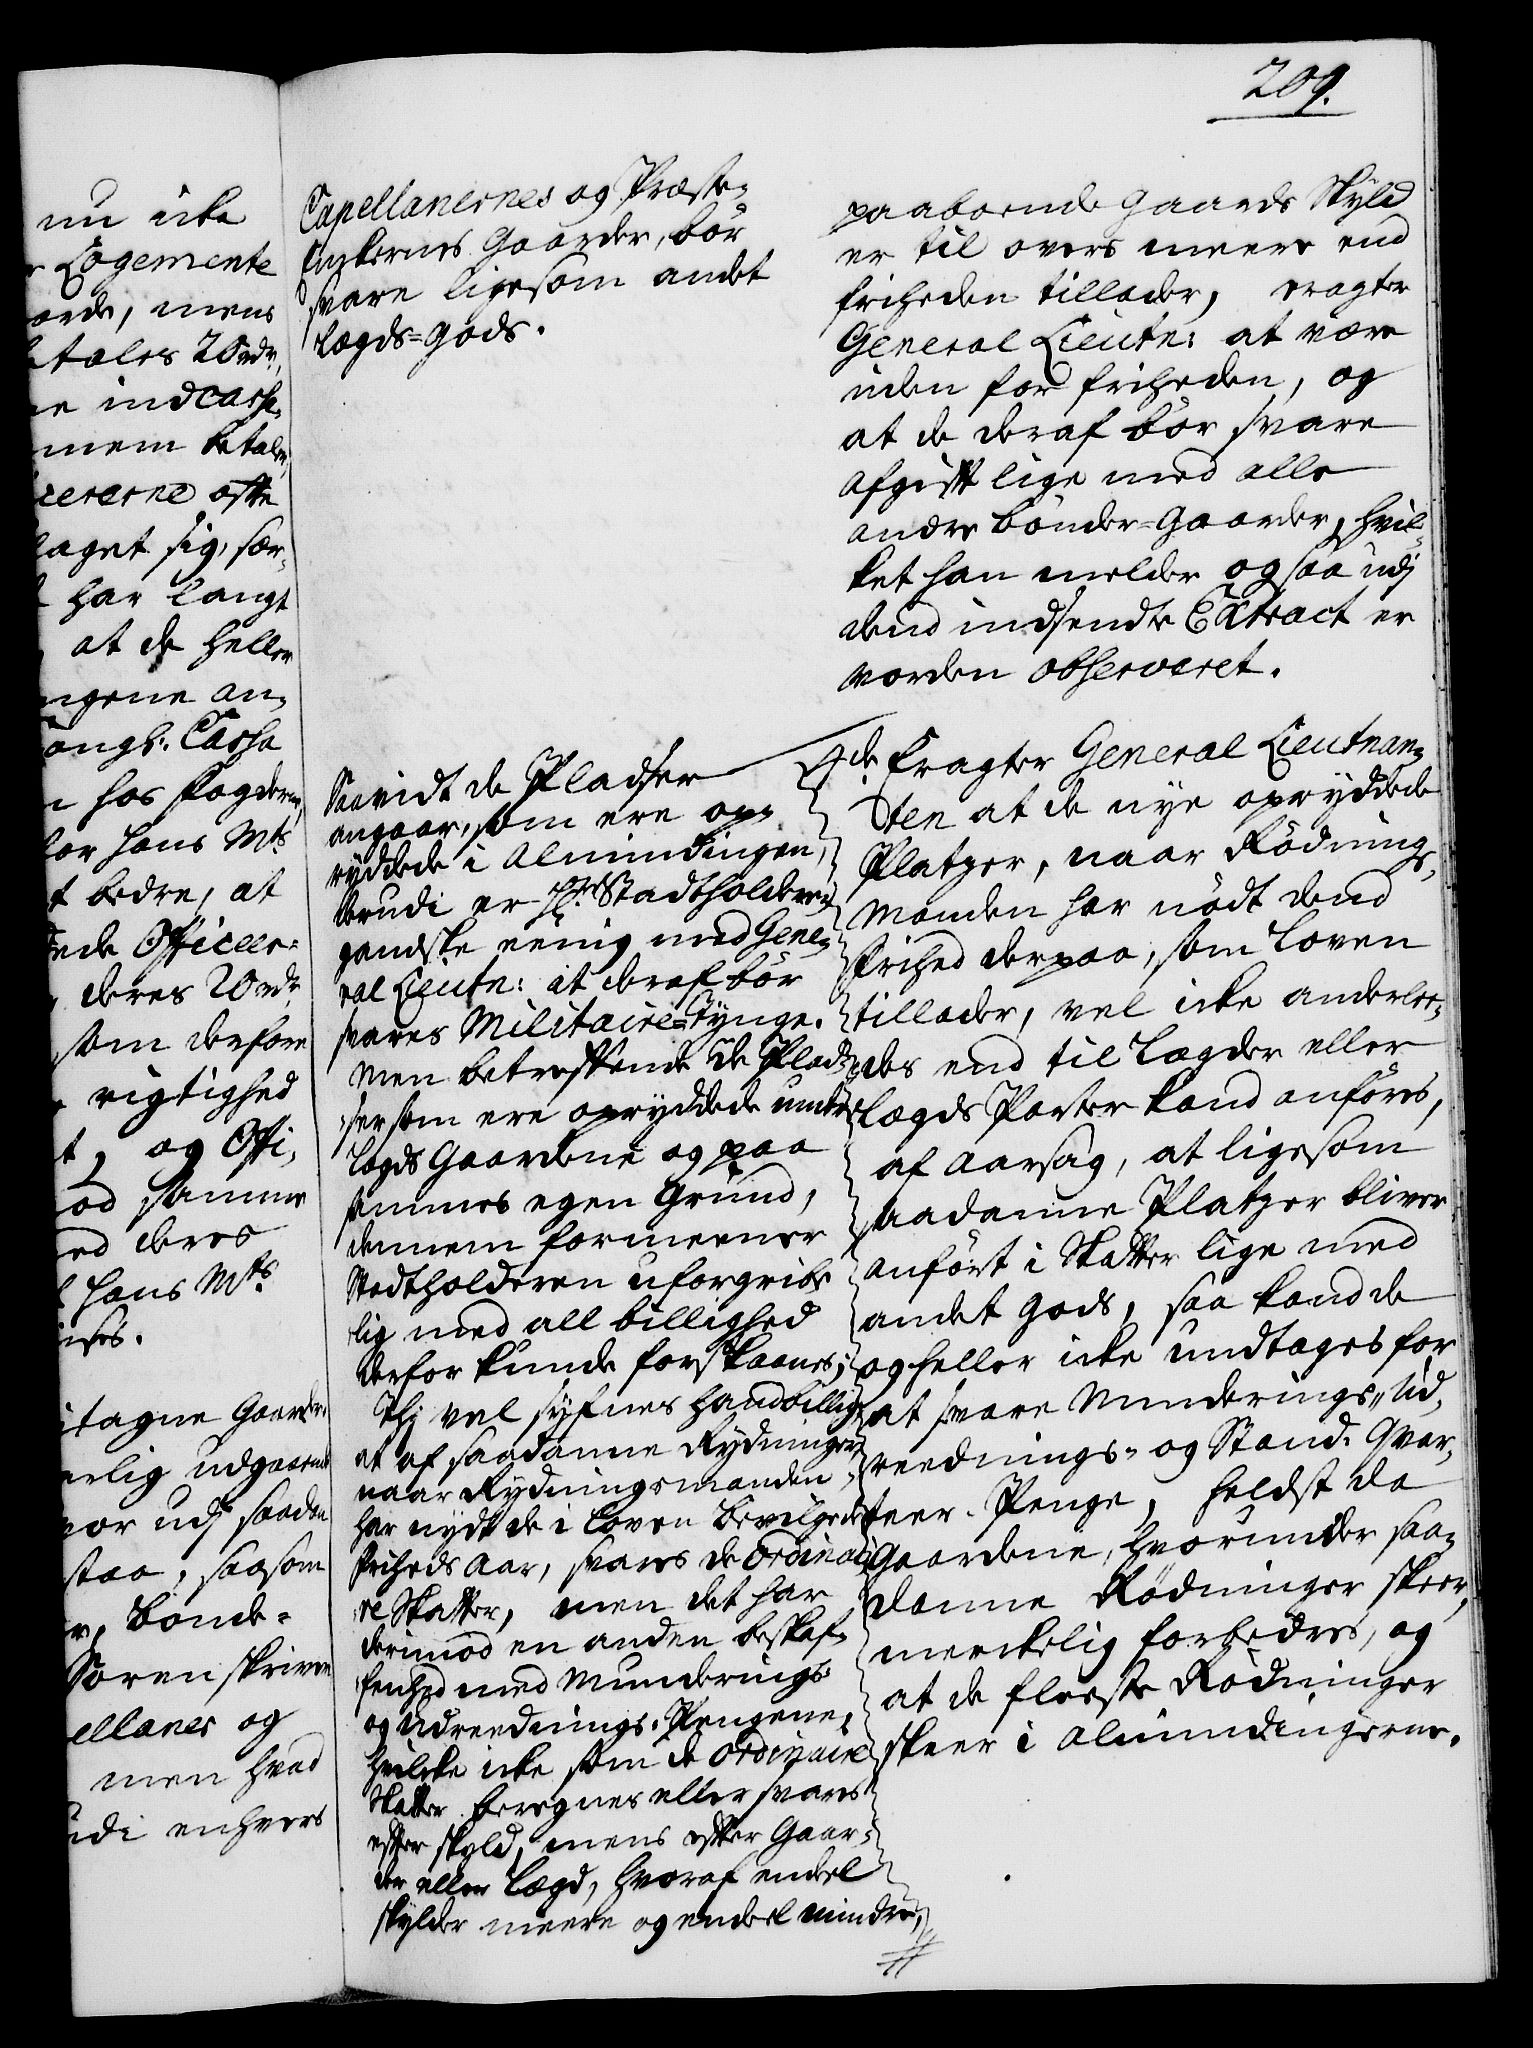 209.
nu icke
Logemente
orde, mens
tales 20 rdr,
ne indcasse,
mem betaler,
cererne ofte
laget sig, sær-
har langt
at de heller
ngene an,
ongl: Cassa
hos fogderne,
for Hans Mts
t bedre, at
ede Officeer=
deres 20 rdr
som derfore
rigtighed
t, og Offi,
od samme
ed deres
Hans Mts
ises.
tagne Gaarder
erlig udgaaende
vor udj saadan
staa, saasom
r, Bonde=
Soren skriver
ellaner og
men hvad
udi enhvers
Capellanernes og Præste-
Enkernes Gaarder, bör
svare ligesom andet
Lægds=gods.
Saavidt de Pladser
angaar, som ere op-
ryddede i Almindingen,
derudi er Hr Stadtholderen
gandske eenig med Gene-
ral Lieutn: at deraf bör
svares Militaire=Tynge.
Men betreffende de Plad-
ser som ere opryddede under
Lægds Gaardene og paa
sammes egen Grund,
dennem formeener
Stadtholderen uforgribe
lig med all billighed
derfor kunde forskaanes;
Thj vel syfnes hand billigt
at af saadanne Rydninger
naar Rydningsmanden
har nydt de i Loven bevilgede
friheds Aar, svares de Ordinai
re Skatter, men det har
derimod en anden beskaf-
fenhed med Munderings
og Udreednings-Pengene,
hvilcke icke som de Ordinaire
Skatter beregnes eller svares
efter skyld, mens efter Gaar-
der eller Lægd, hvoraf endeel
skylder meere og endeel mindre,
#
paaboende Gaards Skyld
er til overs meere end
friheden tillader, eragter
General Lieutn: at være
uden for friheden, og
at de deraf bör svare
Afgift lige med alle
andre Bönder=Gaarder, hvil-
ket han melder ogsaa udj
dend indsendte Extract er
vorden observeret.
4de Eragter General Lieutnan-
ten at de nye opryddede
Platzer, naar Rödnings,
Manden har nödt dend
frihed derpaa, som Loven
tillader, vel icke anderlee-
des end til Lægder eller
Lægds Parter kand anföres,
af Aarsag, at ligesom
saadanne Platzer bliver
anfört i Skatter lige med
andet Gods, saa kand de
og heller icke undtages for
at svare Munderings, Ud,
reednings- og Stand-Qvar-
teer-Penge, heldst da
Gaardene, hvorunder saa-
danne Rödninger skeer,
merckelig forbedres, og
at de fleeste Rödninger
skeer i Alminding erne.